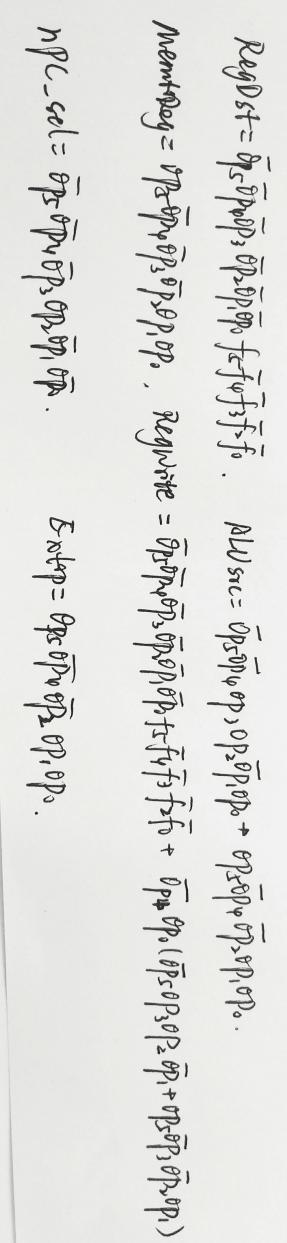 RegDst = o̅p̅₅ o̅p̅₄ o̅p̅₃ o̅p̅₂ o̅p̅₁ o̅p̅₀ f₅ f̅₄ f̅₃ f̅₂ f̅₀ . ALUsrc = o̅p̅₅ o̅p̅₄ op₃ op₂ o̅p̅₁ op₀ + op₅ o̅p̅₄ o̅p̅₂ op₁ op₀.
MemtoReg = op₅ o̅p̅₄ o̅p̅₃ o̅p̅₂ op₁ op₀ , RegWrite = o̅p̅₅ o̅p̅₄ o̅p̅₃ o̅p̅₂ o̅p̅₁ o̅p̅₀ f₅ f̅₄ f̅₃ f̅₂ f̅₀ + o̅p̅₄ op₀ (o̅p̅₅ op₃ op₂ o̅p̅₁ + op₅ o̅p̅₃ o̅p̅₂ op₁)
nPC_sel = o̅p̅₅ o̅p̅₄ o̅p̅₃ op₂ o̅p̅₁ o̅p̅₀ . Extop = op₅ o̅p̅₄ o̅p̅₂ op₁ op₀.